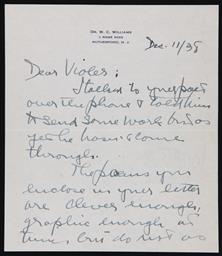 DR. W. C. WILLIAMS
9 RIDGE ROAD
RUTHERFORD, N. J.
Dec. 11/38
Dear Violet:
I talked to your poet
over the phone & told him
to send some work but as
yet he hasn't come
through.
The poems you
enclose in your letter
are clever enough,
graphic enough at
times, but do not as